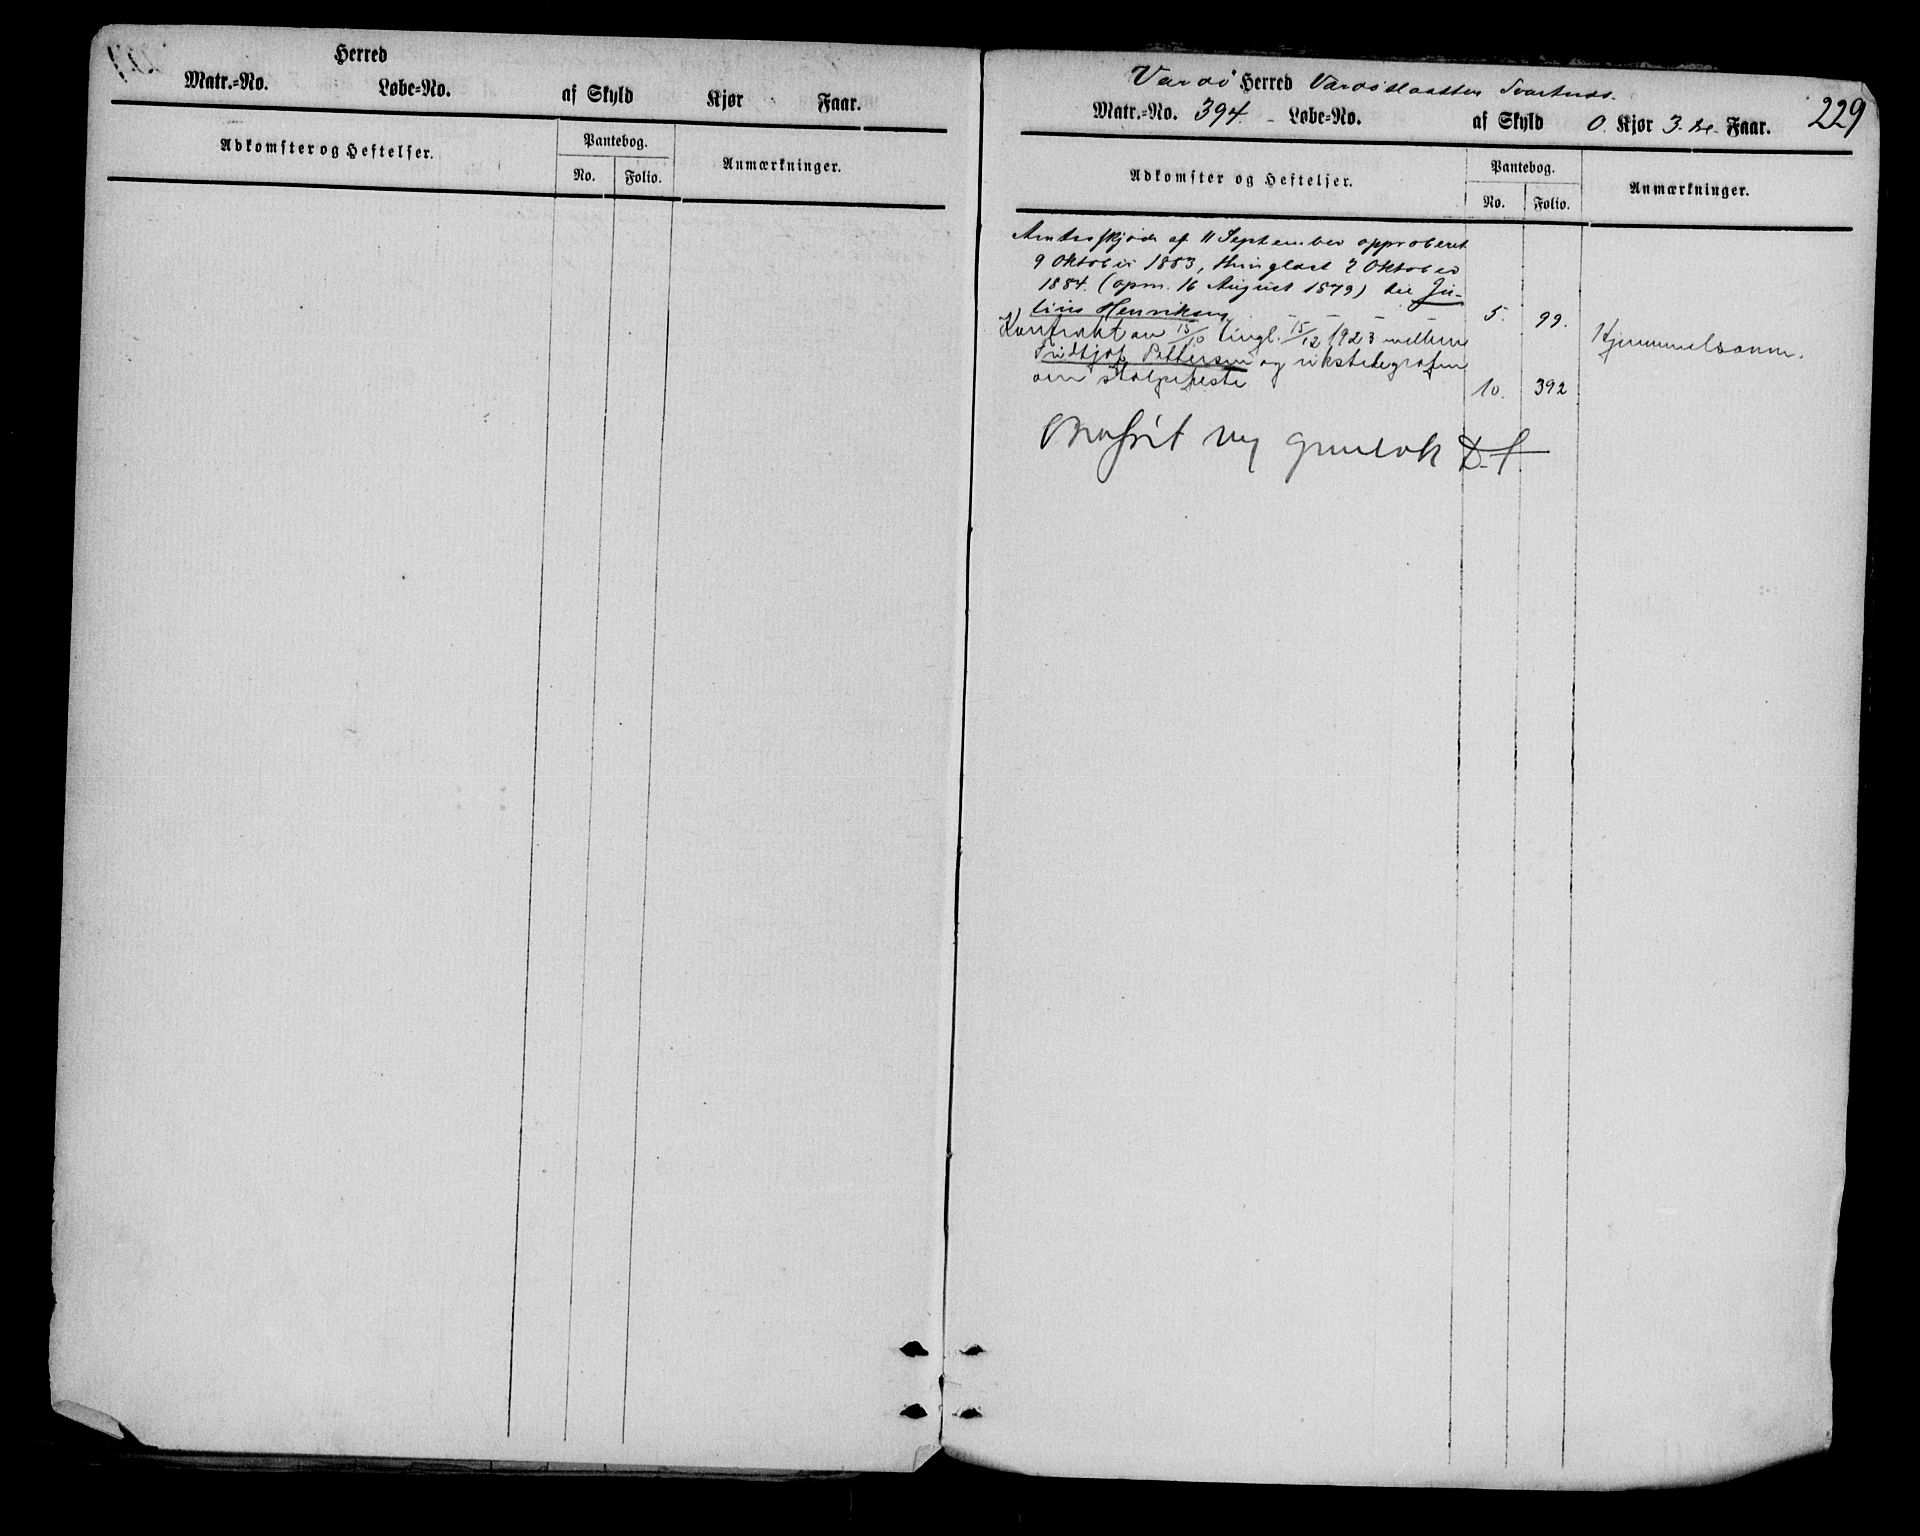 Herred
Matr.=No. Løbe=No. af Skyld Kjør Faar.
Adkomster og Heftelser. Pantebog. Anmærkninger.
No. Folio.
Vardø Herred Vardøslaatten Svartnæs. 229
Matr.=No. 394. Løbe=No. af Skyld 0. Kjør 3. Faar.
Adkomster og Heftelser. Pantebog. Anmærkninger.
No. Folio.
Amtsskjøde af 11 September approberet
9 Oktober 1883, thinglæst 7 Oktober
1884. (opm. 16 August 1879) til Ju-
lius Henriksen 5. 99.
Kontrakt av 15/10 tingl. 15/12 1923 mellem
Fridtjof Pettersen og rikstelegrafen Hjemmelsanm.
om stolpefeste 10. 392
Overført ny grundbok D. f.